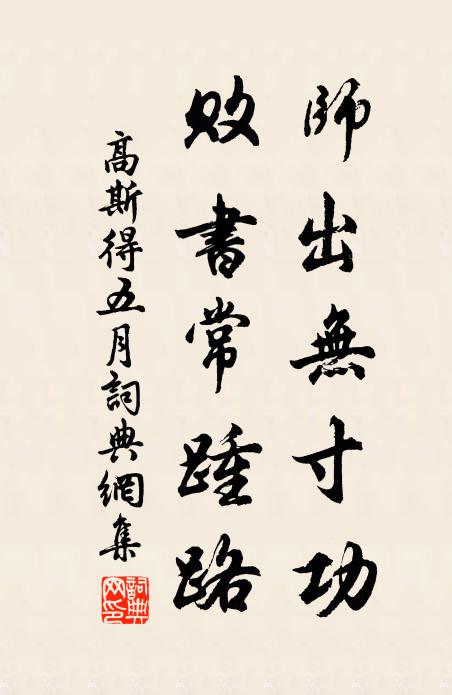 師出無寸功
敗書常踵路
高斯得五月詞典網集
詞典網印